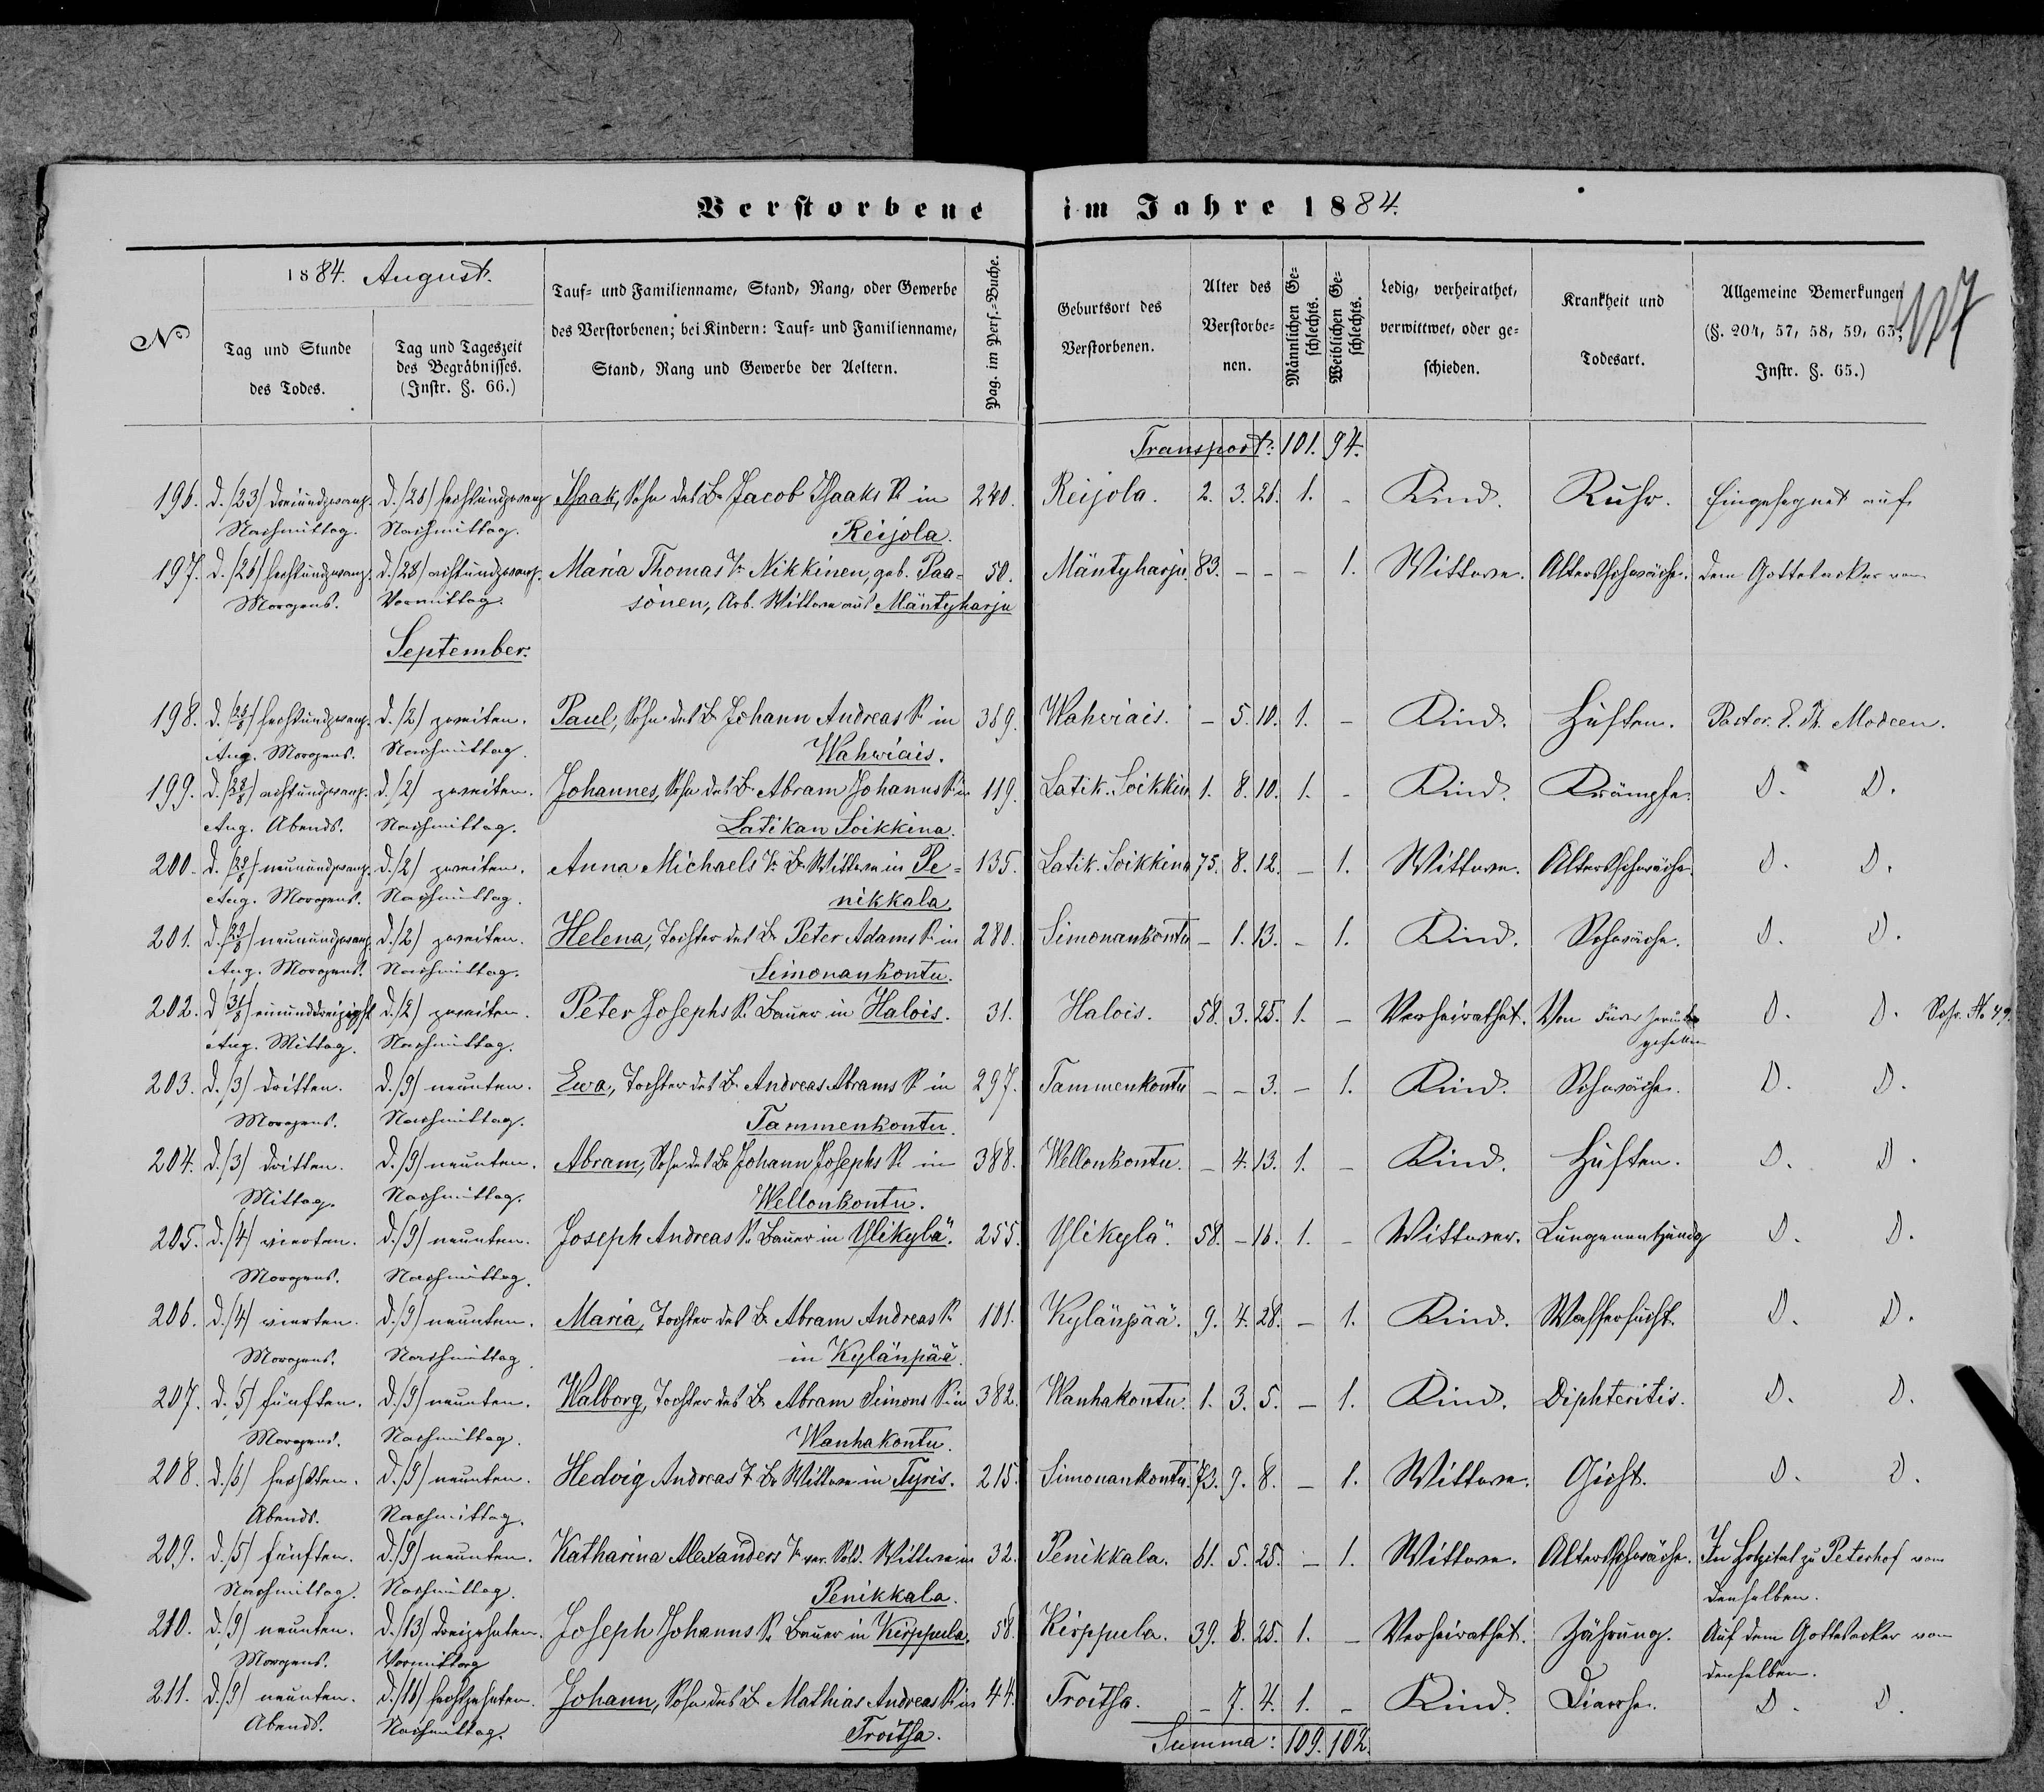 Verstorbene im Jahre 1884.
117
No
1884. August.
Tag und Stunde
des Todes.
Tag und Tageszeit
des Begräbnisses.
(Instr. §. 66.)
Tauf= und Familienname, Stand, Rang, oder Gewerbe
des Verstorbenen; bei Kindern: Tauf= und Familienname,
Stand, Rang und Gewerbe der Aeltern.
Pag. im Pers.=Buche.
Geburtsort des
Verstorbenen.
Alter des
Verstorbe=
nen.
Männlichen Ge=
schlechts.
Weiblichen Ge=
schlechts.
Ledig, verheirathet,
verwittwet, oder ge=
schieden.
Krankheit und
Todesart.
Allgemeine Bemerkungen
(§. 204, 57, 58, 59, 63,
Instr. §. 65.)
Transport: 101. 94.
196. d. (23) dreiundzwanz. d. (26) sechsundzwanz Isaak, Sohn des B. Jacob Isaaks S. in 240. Reijola. 2. 3. 21. 1. – Kind. Ruhr. Eingesegnet auf
Nachmittag. Nachmittag. Reijola.
197. d. (26) sechsundzwanz. d. (28) achtundzwanz. Maria Thomas T. Nikkinen, geb. Paa= 50. Mäntyharju. 83. – – – 1. Wittwe. Altersschwäche. dem Gottesacker vom
Morgens. Vormittag. sonen, Arb. Wittwe aus Mäntyharju
September.
198. d. (26/8) sechsundzwanz. d. (2) zweiten. Paul, Sohn des B. Johann Andreas S. in 369. Wahwiais. – 5. 10. 1. – Kind. Husten. Pastor. E. Th. Modeen.
Aug. Morgens. Nachmittag. Wahwiais.
199. d. (28/8) achtundzwanz. d. (2) zweiten. Johannes, Sohn des B. Abram Johanns S. in 119. Latik. Soikkin 1. 8. 10. 1. – Kind. Krämpfe. D. D.
Aug. Abends. Nachmittag. Latikan Soikkina.
200. d. (29/8) neunundzwanz. d. (2) zweiten. Anna Michaels T. B. Wittwe in Pe= 135. Latik. Soikkina 75. 8. 12. – 1. Wittwe. Altersschwäche. D. D.
Aug. Morgens. Nachmittag. nikkala.
201. d. (29/8) neunundzwanz. d. (2) zweiten. Helena, Tochter des B. Peter Adams S. in 280. Simonankontu – 1. 13. – 1. Kind. Schwäche. D. D.
Aug. Morgens. Nachmittag. Simonankontu.
202. d (31/8) einunddreizigst d. (2) zweiten. Peter Josephs S. Bauer in Halois. 31. Halois. 58. 3. 25. 1. – Verheirathet. Von D. D. Schr. No 49.
Aug. Mittag. Nachmittag. gefallen
203. d. (3) dritten. d. (9) neunten. Ewa, Tochter des B. Andreas Abrams S. in 297. Tammenkontu – – 3. – 1. Kind. Schwäche. D. D.
Morgens. Nachmittag. Tammenkontu.
204. d. (3) dritten. d. (9) neunten. Abram, Sohn des B. Johann Josephs S. in 388. Wellonkontu. – 4. 13. 1. – Kind. Husten. D. D.
Mittag. Nachmittag. Wellonkontu.
205. d. (4) vierten. d. (9) neunten. Joseph Andreas S. Bauer in Ylikylä. 255. Ylikylä. 58. – 16. 1. – Wittwer. Lungenentzündg D. D.
Morgens. Nachmittag.
206. d. (4) vierten. d. (9) neunten. Maria, Tochter des B. Abram Andreas S. 101. Kylänpää. 9. 4. 28. – 1. Kind. Wassersucht. D. D.
Morgens. Nachmittag. in Kylänpää.
207. d. (5) fünften. d. (9) neunten. Walborg, Tochter des B. Abram Simons S. in 382. Wanhakontu. 1. 3. 5. – 1. Kind. Diphteritis. D. D.
Morgens. Nachmittag. Wanhakontu.
208. d. (6) sechsten. d. (9) neunten. Hedvig Andreas T. B. Wittwe in Tyris. 215. Simonankontu. 73. 9. 8. – 1. Wittwe. Gicht. D. D.
Abends. Nachmittag.
209. d. (5) fünften. d. (9) neunten. Katharina Alexanders T. ver. Sold. Wittwe in 32. Penikkala. 61. 5. 25. – 1. Wittwe. Altersschwäche. Im Hospital zu Peterhof vom
Nachmittag. Nachmittag. Penikkala. denselben.
210. d. (9) neunten. d. (13) dreizehnten. Joseph Johanns S. Bauer in Kirppula. 58. Kirppula. 39. 8. 25. 1. – Verheirathet. Zährung. Auf dem Gottesacker vom
Morgens. Vormittag denselben.
211. d. (9) neunten. d. (16) sechszehnten. Johann, Sohn des B. Mathias Andreas S. in 44. Troitsa. – 7. 4. 1. – Kind. Diarrhe. D. D.
Abends. Nachmittag. Troitsa.
Summa: 109. 102.